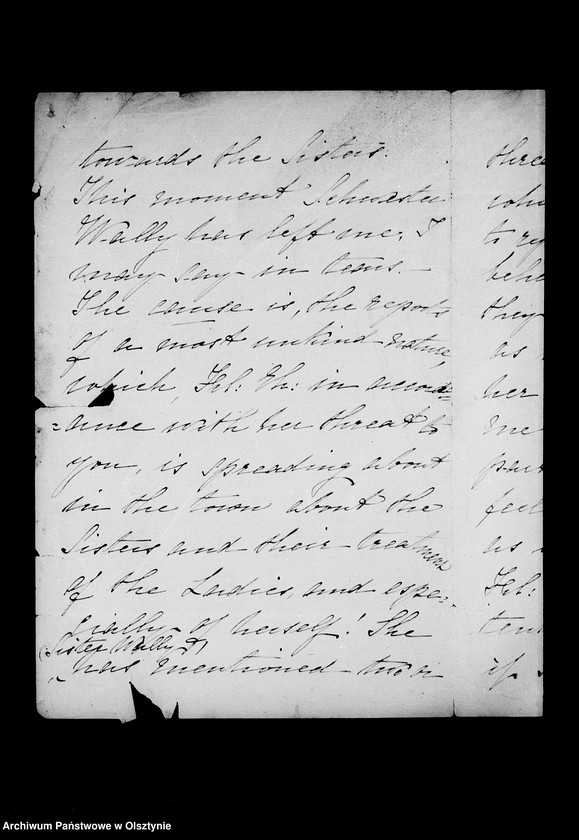 towards the Sisters.
This moment Schwester
Wally has left me; I
may say in tears. —
The cause is, the reports
of a most unkind nature,
which, Frl: Th: in accord=
=ance with her threat to
you, is spreading about
in the town about the
Sisters and their treatment
of the Ladies, and espe-
cially of herself! She
(Sister Wally)
has mentioned two or
they
as
her
me
as
Frl:
if
Archiwum Państwowe w Olsztynie